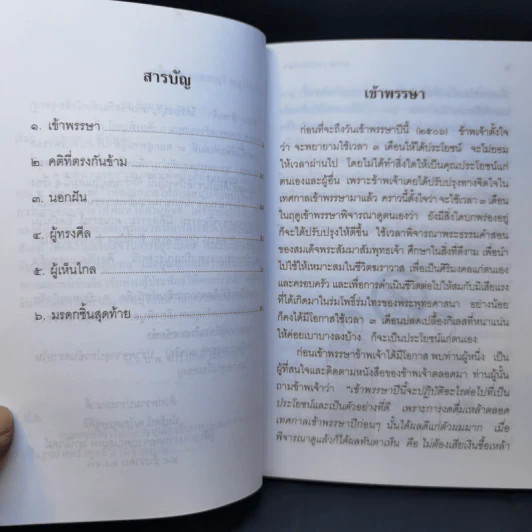 สารบัญ
๑. เข้าพรรษา
๒. คติที่ตรงกันข้าม
๓. นอกฝัน
๔. ผู้ทรงศีล
๕. ผู้เห็นไกล
๖. มรดกชิ้นสุดท้าย
เข้าพรรษา
ก่อนที่จะถึงวันเข้าพรรษาปีนี้ ข้าพเจ้าตั้งใจ
ว่า จะพยายามใช้เวลา ๓ เดือนให้ได้ประโยชน์ จะไม่ยอม
ให้เวลาผ่านไป โดยไม่ได้ทำสิ่งใดให้เป็นคุณประโยชน์แก่
ตนเองและผู้อื่น เพราะข้าพเจ้าเคยได้ปรับปรุงทางจิตใจใน
เทศกาลเข้าพรรษามาแล้ว คราวนี้ตั้งใจว่า จะใช้เวลา ๓ เดือน
ในฤดูเข้าพรรษาพิจารณาดูตนเองว่า ยังมีสิ่งใดบกพร่องอยู่
ก็จะได้ปรับปรุงให้ดีขึ้น ใช้เวลาพิจารณาพระธรรมคำสอน
ของสมเด็จพระสัมมาสัมพุทธเจ้า ศึกษาในสิ่งที่ดีงาม เพื่อนำ
ไปใช้ให้เหมาะสมในชีวิตฆราวาส เพื่อเป็นศิริมงคลแก่ตนเอง
และครอบครัว และเพื่อการดำเนินชีวิตต่อไปให้สมกับมีเสียแรง
ที่ได้เกิดมาในร่มโพธิ์ร่มไทรของพระพุทธศาสนา อย่างน้อย
ก็คงได้มีโอกาสใช้เวลา ๓ เดือนปลดเปลื้องกิเลสที่หนาแน่น
ให้ค่อยเบาบางลงบ้าง ก็จะเป็นประโยชน์แก่ตนเอง
ก่อนเข้าพรรษาข้าพเจ้าได้มีโอกาส พบท่านผู้หนึ่ง เป็น
ผู้ที่สนใจและติดตามหนังสือของข้าพเจ้าตลอดมา ท่านผู้นั้น
ถามข้าพเจ้าว่า "เข้าพรรษาปีนี้จะปฏิบัติอะไรต่อไปที่เป็น
ประโยชน์และเป็นตัวอย่างที่ดี เพราะการงดดื่มเหล้าตลอด
เทศกาลเข้าพรรษาปีก่อนๆ นั้นได้ผลดีแก่ตัวผมมาก เมื่อ
พิจารณาดูแล้วก็ได้ผลทันตาเห็น คือ ไม่ต้องเสียเงินซื้อเหล้า